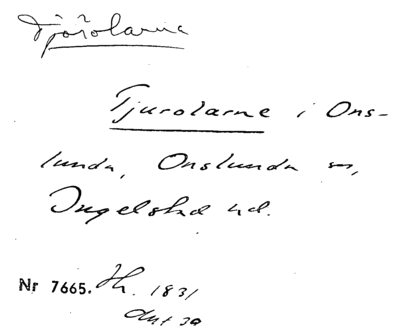 Tjörolarne
Tjurolarne i Ons-
lunda, Onslunda sn,
Ingelstad hd.
Nr 7665. Hh. 1831